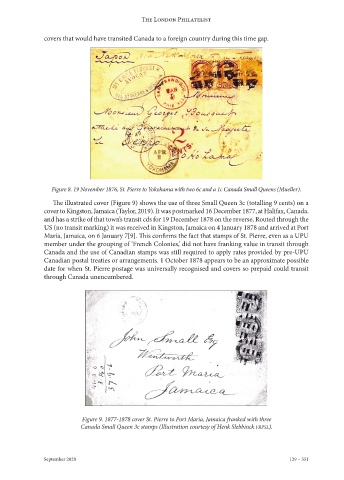 The London Philatelist
covers that would have transited Canada to a foreign country during this time gap.
Japon
Monsieur
Monsieur Georges Bousquet
Yokohama
Figure 8. 19 November 1876, St. Pierre to Yokohama with two 6c and a 1c Canada Small Queens (Mueller).
The illustrated cover (Figure 9) shows the use of three Small Queen 3c (totalling 9 cents) on a
cover to Kingston, Jamaica (Taylor, 2019). It was postmarked 16 December 1877, at Halifax, Canada,
and has a strike of that town's transit cds for 19 December 1878 on the reverse. Routed through the
US (no transit marking) it was received in Kingston, Jamaica on 4 January 1878 and arrived at Port
Maria, Jamaica, on 6 January 7[9]. This confirms the fact that stamps of St. Pierre, even as a UPU
member under the grouping of 'French Colonies,' did not have franking value in transit through
Canada and the use of Canadian stamps was still required to apply rates provided by pre-UPU
Canadian postal treaties or arrangements. 1 October 1878 appears to be an approximate possible
date for when St. Pierre postage was universally recognised and covers so prepaid could transit
through Canada unencumbered.
John Small Esq
Wentworth
Port Maria
Jamaica
Figure 9. 1877-1878 cover St. Pierre to Port Maria, Jamaica franked with three
Canada Small Queen 3c stamps (Illustration courtesy of Henk Slebbinck FRPSL).
September 2020
129 – 331